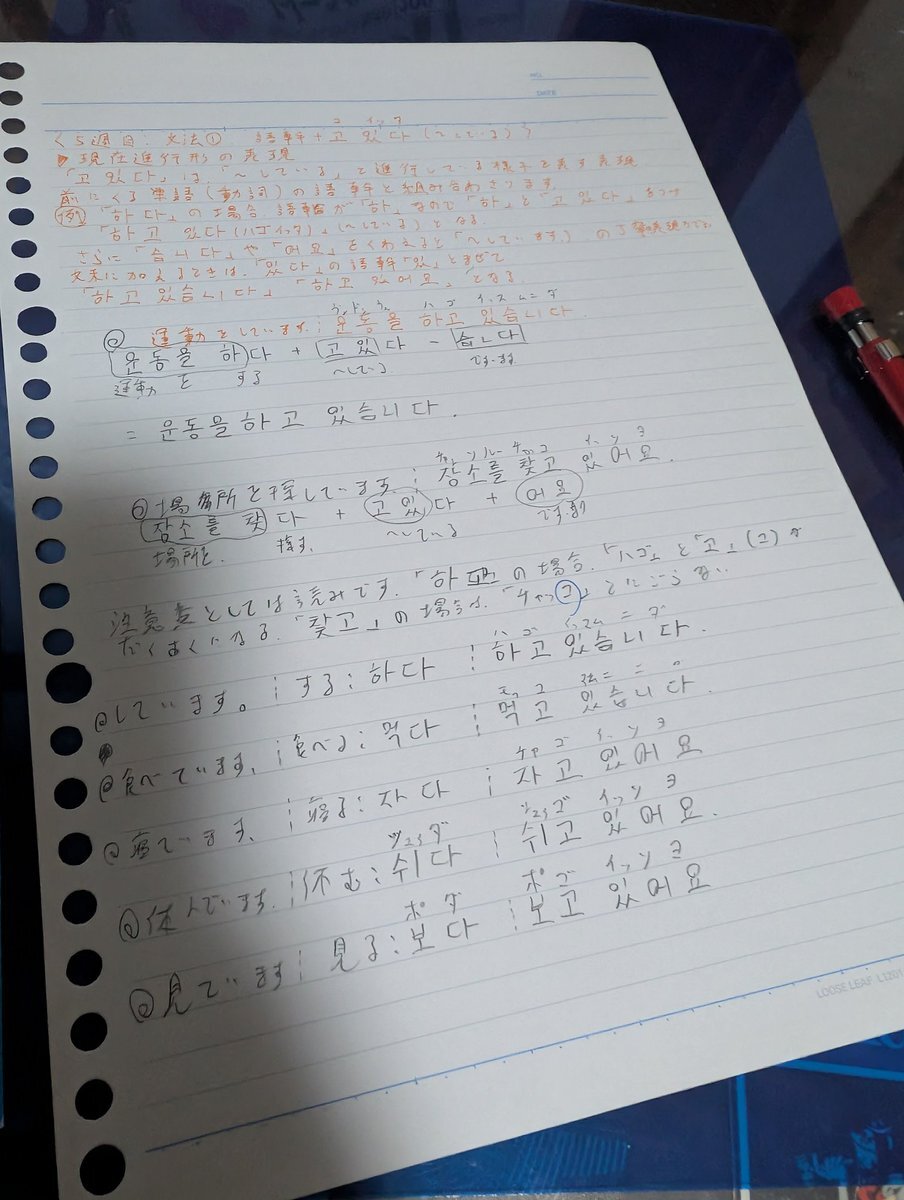 NO.
DATE
コ イッタ
<5週目: 文法① 語幹+고 있다 (〜している)>
▶現在進行形の表現
「고 있다」は「〜している」と進行している様子を表す表現
前にくる単語(動詞)の語幹と組み合わさります。
例 「하다」の場合、語幹が「하」なので「하」と「고 있다」をつけ
「하고 있다(ハゴイッタ)」(〜している)となる
さらに「습니다」や「어요」をくわえると「〜しています」の丁寧な表現です。
文末に加えるときは、「있다」の語幹「있」とまぜて
「하고 있습니다」「하고 있어요」となる
ハ ゴ イッスムニダ
@ 運動をしています; 운동을 하고 있습니다.
운동을 하다 + 고 있다 - 습니다
運動 を する 〜している です・ます
= 운동을 하고 있습니다.
チャンソルル チャッコ イッソヨ
@場所を探しています; 장소를 찾고 있어요.
장소를 찾다 + 고 있다 + 어요
場所を 探す 〜している です・ます
注意点としては読みです。「하고」の場合、「ハゴ」と「고」(コ)が
だくおんになる。「찾고」の場合は、「チャッコ」とにごらない
ハ ゴ イッスムニダ
@しています。; する: 하다 ; 하고 있습니다.
@食べています。; 食べる: 먹다 ; 먹고 있습니다.
チャ ゴ イッソヨ
@寝ています。; 寝る: 자다 ; 자고 있어요
@休んでいます。; 休む: 쉬다 ; 쉬고 있어요.
ポ ダ ポ ゴ イッソヨ
@見ています; 見る: 보다 ; 보고 있어요
LOOSE LEAF L1201